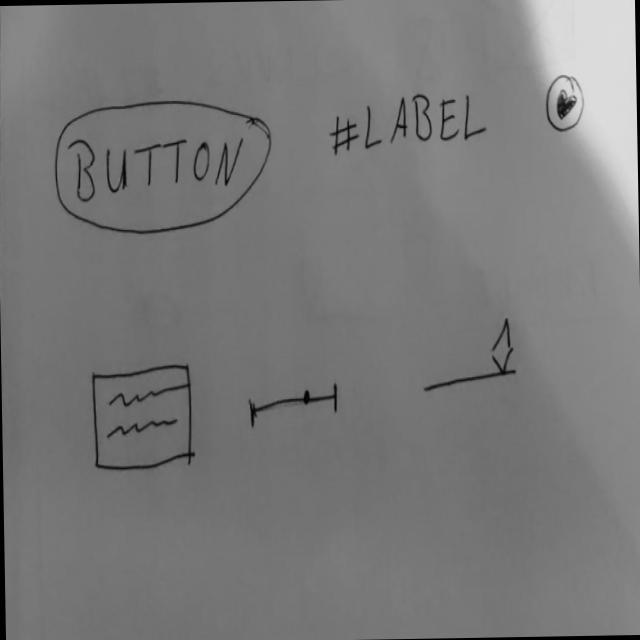 BUTTON #LABEL